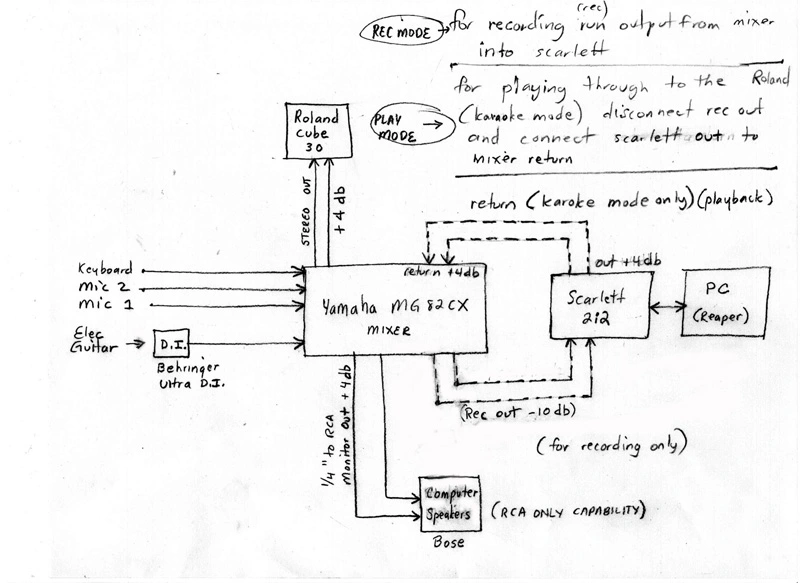 REC MODE → for recording run (rec) output from mixer
into scarlett
for playing through to the Roland
PLAY MODE → (karaoke mode) disconnect rec out
and connect scarlett out to
mixer return
Roland
Cube
30
STEREO OUT
+4 db
return (karoke mode only) (playback)
out +4db
return +4db
Keyboard
mic 2
mic 1
Elec
Guitar
D.I.
Behringer
Ultra D.I.
Yamaha MG 82CX
MIXER
Scarlett
2i2
PC
(Reaper)
(Rec out -10 db)
(for recording only)
1/4" to RCA
Monitor out +4db
Computer
Speakers
(RCA ONLY CAPABILITY)
Bose